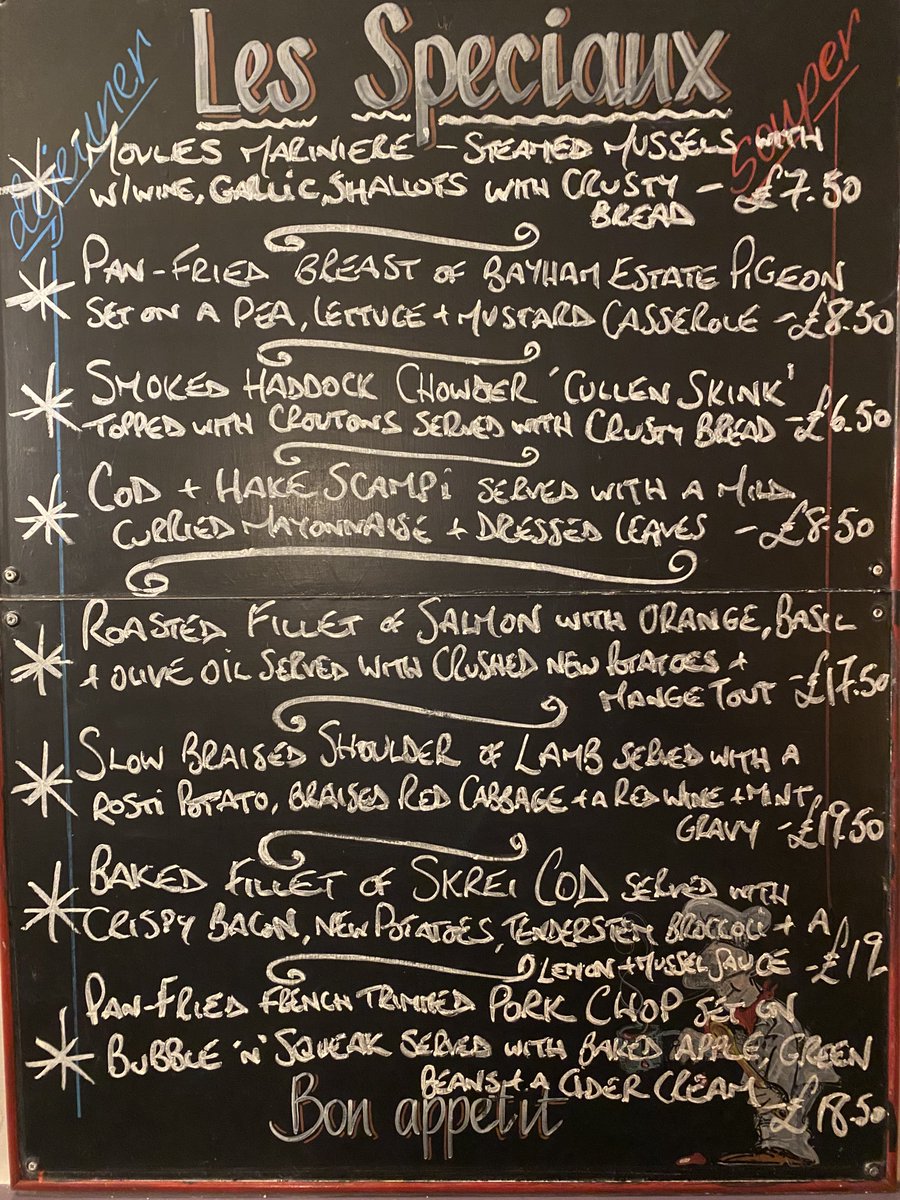 Les Speciaux
déjeuner
Souper
* MOULES MARINIERE - STEAMED MUSSELS WITH
W/WINE, GARLIC, SHALLOTS WITH CRUSTY - £7.50
BREAD
* PAN-FRIED BREAST OF BAYHAM ESTATE PIGEON
SET ON A PEA, LETTUCE + MUSTARD CASSEROLE - £8.50
* SMOKED HADDOCK CHOWDER 'CULLEN SKINK'
TOPPED WITH CROUTONS SERVED WITH CRUSTY BREAD - £6.50
* COD + HAKE SCAMPI SERVED WITH A MILD
CURRIED MAYONNAISE + DRESSED LEAVES - £8.50
* ROASTED FILLET OF SALMON WITH ORANGE, BASIL
+ OLIVE OIL SERVED WITH CRUSHED NEW POTATOES +
MANGE TOUT - £17.50
* SLOW BRAISED SHOULDER OF LAMB SERVED WITH A
ROSTI POTATO, BRAISED RED CABBAGE + A RED WINE + MINT
GRAVY - £19.50
* BAKED FILLET OF SKREI COD SERVED WITH
CRISPY BACON, NEW POTATOES, TENDERSTEM BROCCOLI + A
LEMON + MUSSEL SAUCE - £19
* PAN-FRIED FRENCH TRIMMED PORK CHOP SET ON
BUBBLE 'N' SQUEAK SERVED WITH BAKED APPLE, GREEN
BEANS + A CIDER CREAM - £18.50
Bon appetit